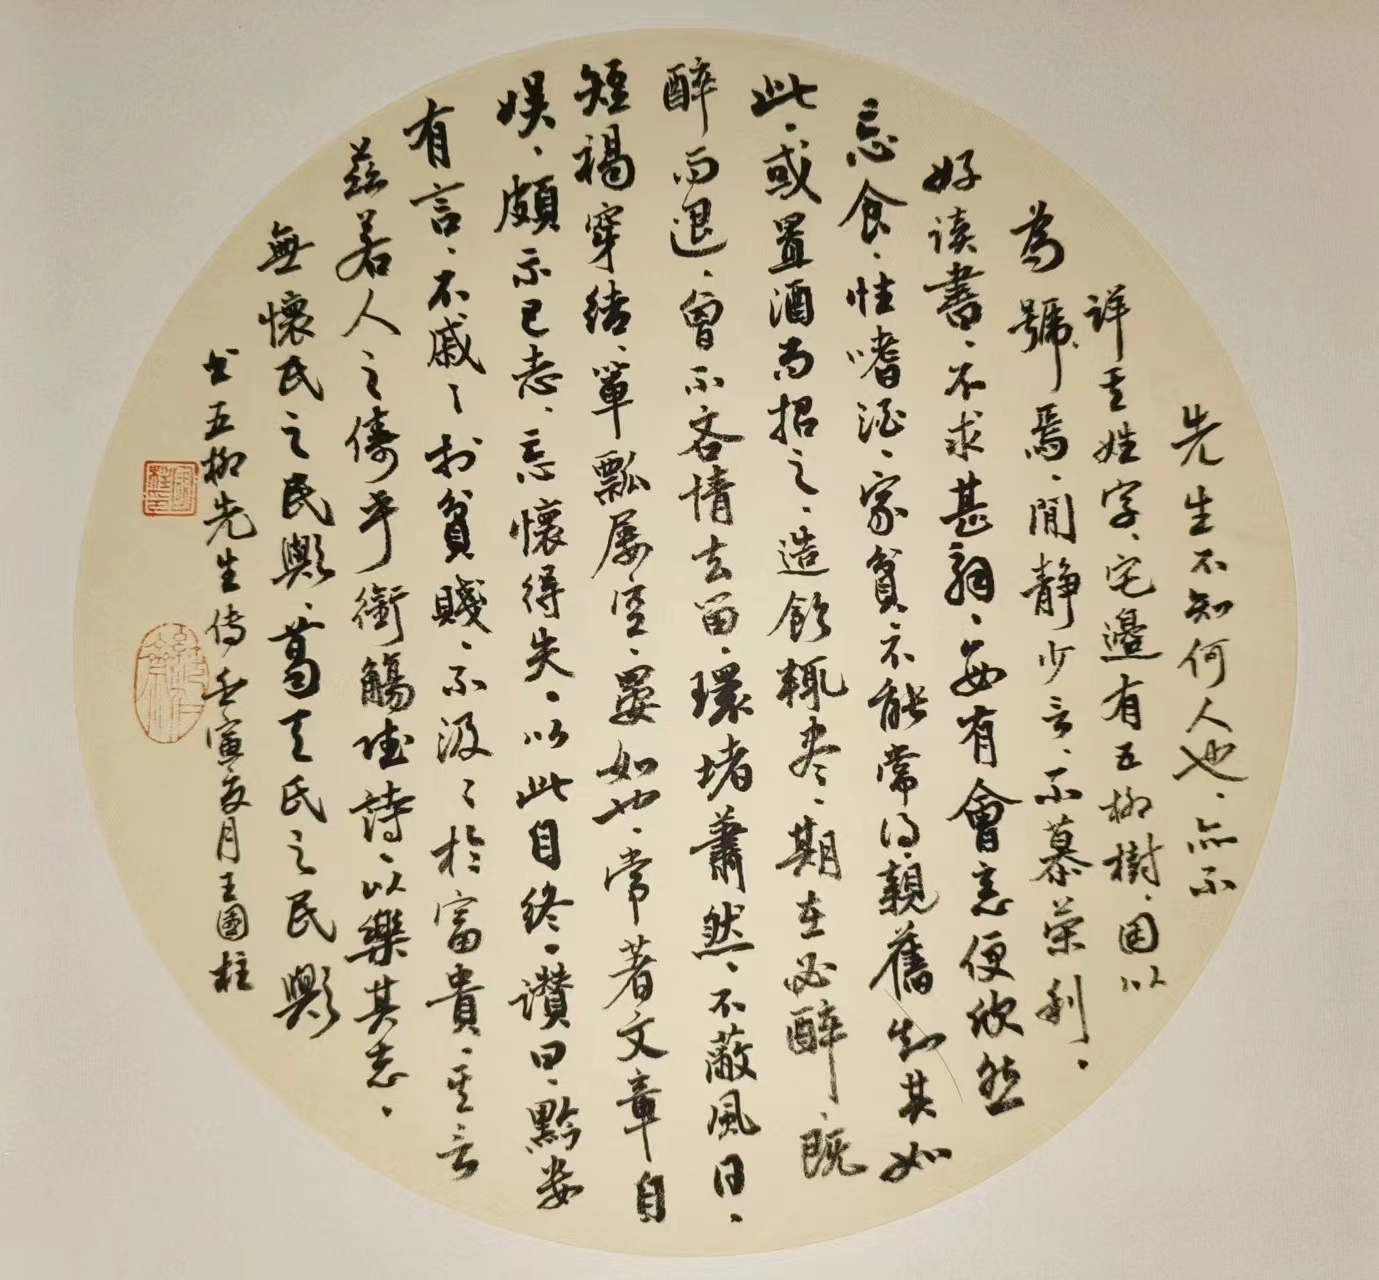 先生不知何人也、亦不
詳其姓字、宅邊有五柳樹、因以
為號焉、閒静少言、不慕荣利、
好读書、不求甚解、每有會意便欣然
忘食、性嗜酒、家貧、不能常得、親舊知其如
此、或置酒而招之、造飲輒盡、期在必醉、既
醉而退、曾不吝情去留、環堵蕭然、不蔽風日、
短褐穿结、箪瓢屡空、晏如也、常著文章自
娱、頗示己志、忘懷得失、以此自终、讚曰、黔娄
有言、不戚々於貧賤、不汲々於富貴、其言
兹若人之儔乎衔觴赋詩、以樂其志、
無懷氏之民歟、葛天氏之民歟
书五柳先生傳壬寅夏月王國柱